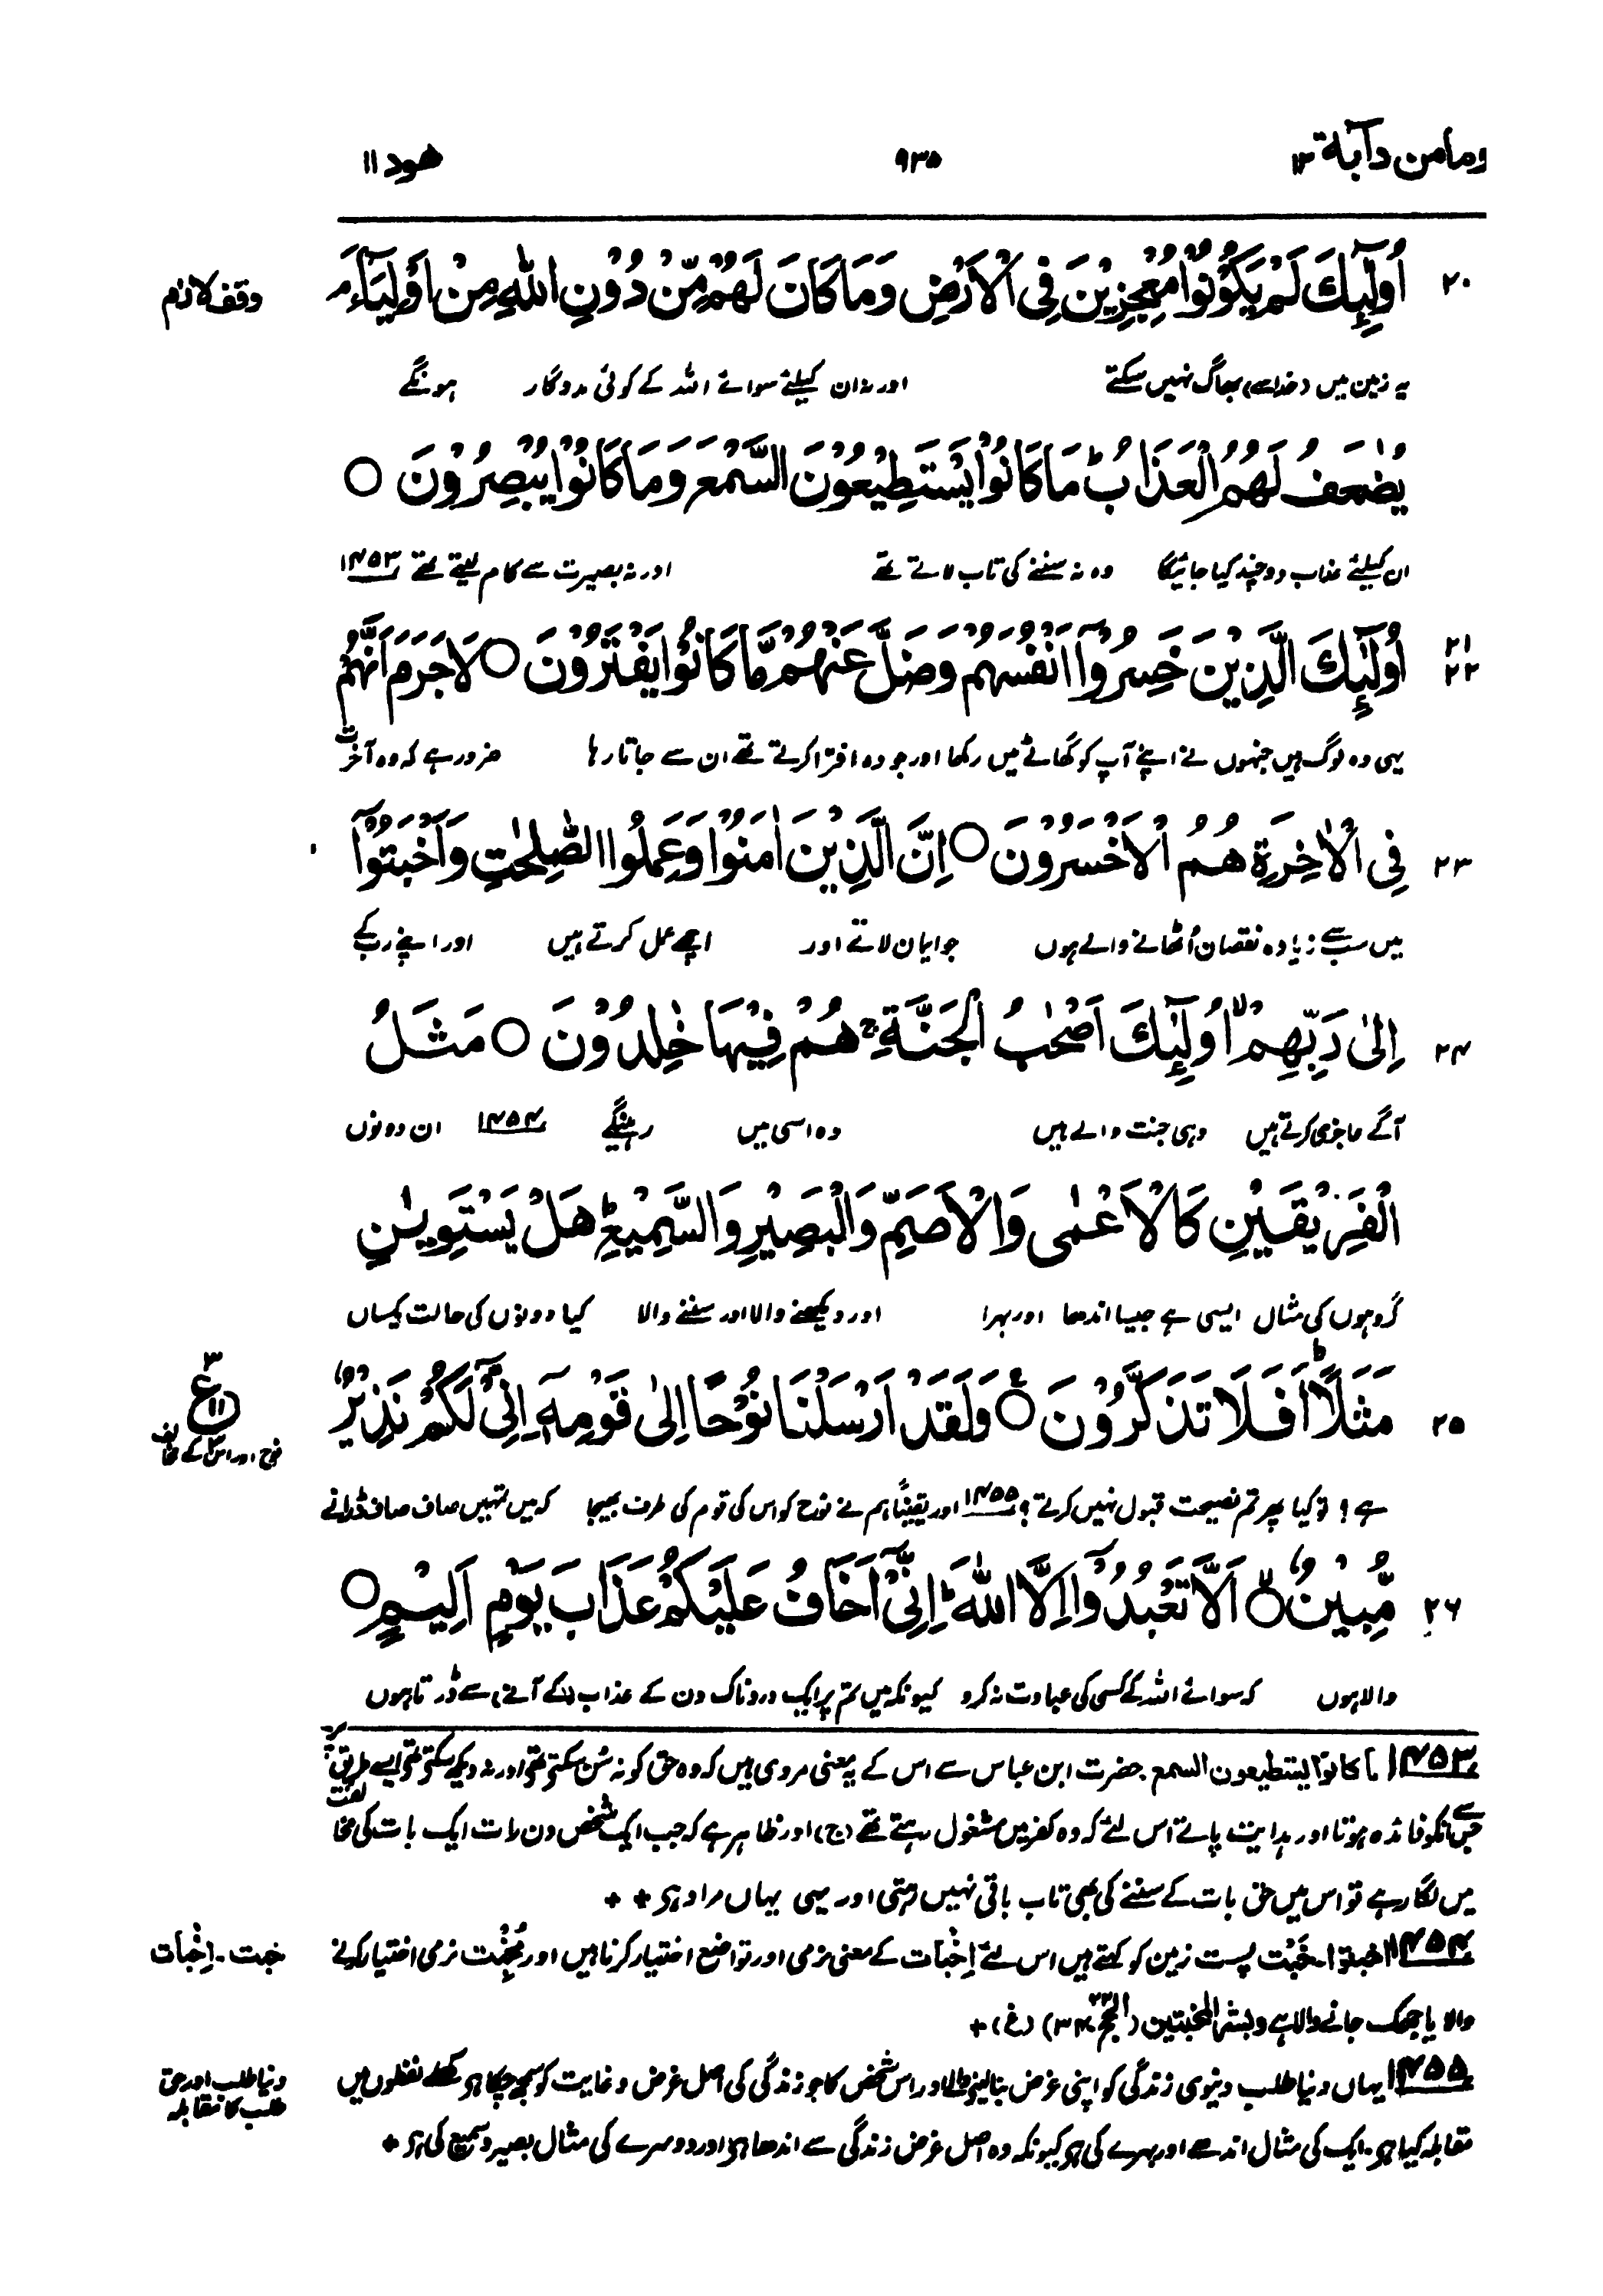 ومامن دآبة ۱۲
۹۳۵
ھود ۱۱
۲۰
اُولٰٓئِكَ لَمْ يَكُوْنُوْا مُعْجِزِيْنَ فِى الْاَرْضِ وَمَا كَانَ لَهُمْ مِّنْ دُوْنِ اللّٰهِ مِنْ اَوْلِيَآءَ ۘ
وقف لازم
یہ زمین میں (خدا سے) بھاگ نہیں سکتے اور نہ ان کیلئے سوائے اللہ کے کوئی مددگار ہونگے
يُضٰعَفُ لَهُمُ الْعَذَابُ ؕ مَا كَانُوْا يَسْتَطِيْعُوْنَ السَّمْعَ وَمَا كَانُوْا يُبْصِرُوْنَ ○
ان کیلئے عذاب دوچند کیا جائیگا وہ نہ سننے کی تاب لاتے تھے اور نہ بصیرت سے کام لیتے تھے ۱۴۵۳
۲۱
۲۲
اُولٰٓئِكَ الَّذِيْنَ خَسِرُوْٓا اَنْفُسَهُمْ وَضَلَّ عَنْهُمْ مَّا كَانُوْا يَفْتَرُوْنَ ○ لَا جَرَمَ اَنَّهُمْ
یہی وہ لوگ ہیں جنہوں نے اپنے آپ کو گھاٹے میں رکھا اور جو وہ افترا کرتے تھے ان سے جاتا رہا ضرور ہے کہ وہ آخرت
۲۳
فِى الْاٰخِرَةِ هُمُ الْاَخْسَرُوْنَ ○ اِنَّ الَّذِيْنَ اٰمَنُوْا وَعَمِلُوا الصّٰلِحٰتِ وَاَخْبَتُوْٓا
میں سب سے زیادہ نقصان اُٹھانے والے ہوں جو ایمان لاتے اور اچھے عمل کرتے ہیں اور اپنے رب کے
۲۴
اِلٰى رَبِّهِمْ ۙ اُولٰٓئِكَ اَصْحٰبُ الْجَنَّةِ ۚ هُمْ فِيْهَا خٰلِدُوْنَ ○ مَثَلُ
آگے عاجزی کرتے ہیں وہی جنت والے ہیں وہ اسی میں رہینگے ۱۴۵۴ ان دونوں
الْفَرِيْقَيْنِ كَالْاَعْمٰى وَالْاَصَمِّ وَالْبَصِيْرِ وَالسَّمِيْعِ ؕ هَلْ يَسْتَوِيٰنِ
گروہوں کی مثال ایسی ہے جیسا اندھا اور بہرا اور دیکھنے والا اور سننے والا کیا دونوں کی حالت یکساں
۲۵
مَثَلًا ؕ اَفَلَا تَذَكَّرُوْنَ ○ع وَلَقَدْ اَرْسَلْنَا نُوْحًا اِلٰى قَوْمِهٖٓ اِنِّىْ لَكُمْ نَذِيْرٌ
۳
ع
۱۱
نوح اور اس کے مخالف
ہے؟ تو کیا پھر تم نصیحت قبول نہیں کرتے؟ ۱۴۵۵ اور یقیناً ہم نے نوح کو اس کی قوم کی طرف بھیجا کہ میں تمہیں صاف صاف ڈرانے
۲۶
مُّبِيْنٌ ○ۙ اَلَّا تَعْبُدُوْٓا اِلَّا اللّٰهَ ؕ اِنِّىْٓ اَخَافُ عَلَيْكُمْ عَذَابَ يَوْمٍ اَلِيْمٍ ○
والا ہوں کہ سوائے اللہ کے کسی کی عبادت نہ کرو کیونکہ میں تم پر ایک دردناک دن کے عذاب (کے آنے) سے ڈرتا ہوں
۱۴۵۳ ما کانوا یستطیعون السمع۔ حضرت ابن عباس سے اس کے یہ معنی مروی ہیں کہ وہ حق کو نہ سُن سکتے تھے اور نہ دیکھ سکتے تھے ایسے طریق پر
جس سے انکو فائدہ ہوتا اور ہدایت پاتے اس لئے کہ وہ کفر میں مشغول رہتے تھے (ج) اور ظاہر ہے کہ جب ایک شخص دن رات ایک بات کی مخالفت
میں لگا رہے تو اس میں حق بات کے سننے کی بھی تاب باقی نہیں رہتی اور یہی یہاں مراد ہے + +
۱۴۵۴ اخبتوا۔ خَبْت پست زمین کو کہتے ہیں اس لئے اِخْبَات کے معنی نرمی اور تواضع اختیار کرنا ہیں اور مُخْبِت نرمی اختیار کرنے
خبت۔ اِخْبَات
والا یا جھک جانے والا ہے وبشر المخبتین (الحج ۲۲، ۳۴) (غ) +
۱۴۵۵ یہاں دنیا طلب دنیوی زندگی کو اپنی غرض بنا لینے والے اور اس شخص کا جو زندگی کی اصل غرض و غایت کو سمجھ چکا ہو کھلے لفظوں میں
دنیا طلب اور حق
طلب کا مقابلہ
مقابلہ کیا ہے۔ ایک کی مثال اندھے اور بہرے کی ہے کیونکہ وہ اصل غرض زندگی سے اندھا ہے اور دوسرے کی مثال بصیر و سمیع کی ہے +